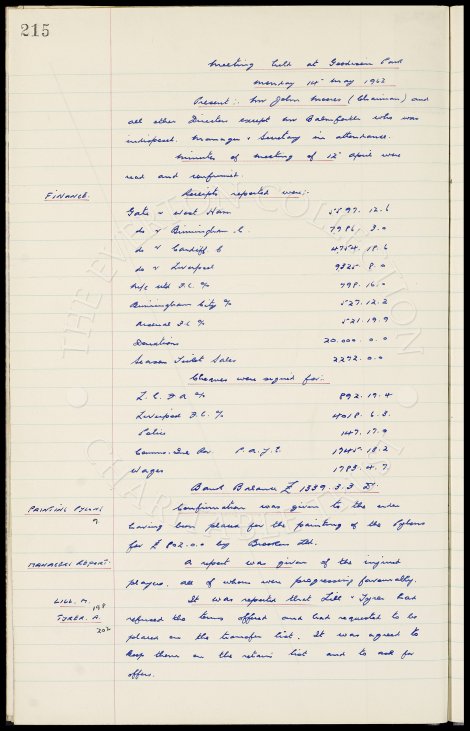 215
Meeting held at Goodison Park
Monday 14th May 1962
Present:. Mr John Moores (Chairman) and
all other Directors except Mr Balmforth who was
indisposed. Manager & Secretary in attendance.
Minutes of meeting of 12th April were
read and confirmed.
FINANCE. Receipts reported were:-
Gate v West Ham 5597. 12. 6
do v Birmingham C. 7986. 3. 0
do v Cardiff C 4754. 18. 6
do v Liverpool 9825. 8. 0
M/c Utd F.C. % 798. 16. 0
Birmingham City % 527. 12. 2
Arsenal F.C % 521. 19. 9
Donations 20.000. 0. 0
Season Ticket Sales 2272. 0. 0
Cheques were signed for:-
L. C. F A % 892. 19. 4
Liverpool F.C. % 4018. 6. 3
Police 147. 17. 9
Comms. Inl Rev P. A. Y. E. 1945. 18. 2
Wages 1783. 4. 7
Bank Balance £ 1339. 3. 3
PAINTING PYLONS Confirmation was given to the order
having been placed for the painting of the Pylons
for £ 802. 0. 0 by Ltd.
MANAGERS REPORT. A report was given of the injured
players. all of whom were progressing favourably.
LILL. M. It was reported that Lill & Tyrer had
198
TYRER. A. refused the terms offered and had requested to be
202
placed on the transfer list. It was agreed to
keep them on the retain list and to ask for
offers.
THE EVERTON COLLECTION
CHARITABLE